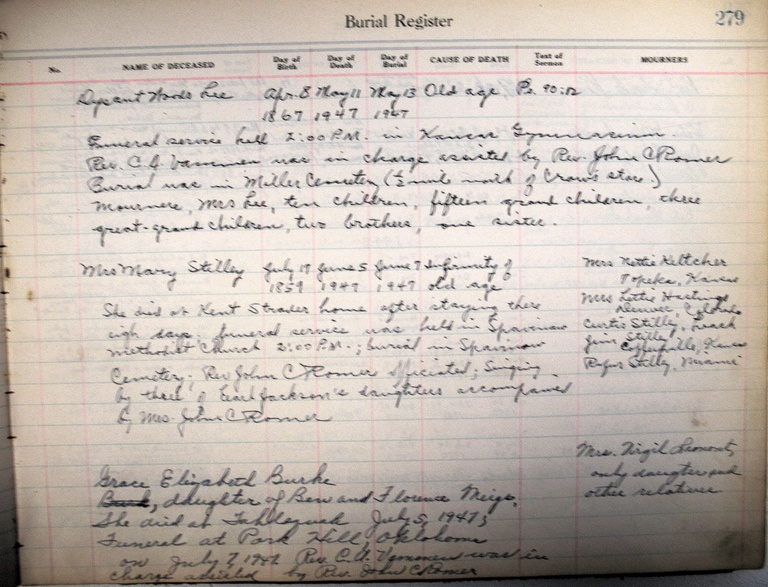 Burial Register
279
No. NAME OF DECEASED Day of Birth Day of Death Day of Burial CAUSE OF DEATH Text of Sermon MOURNERS
Woods Lee Apr. 8 May 11 May 13 Old age Ps. 90:12
1867 1947 1947
Funeral service held 2:00 P.M. in Kansas Gymnasium.
Rev. C. A. was in charge assisted by Rev. John C Romer
Burial was in Miller Cemetery (½ mile north of Crows store)
Mourners, Mrs Lee, ten children, fifteen grand children, three
great-grand children, two brothers, one sister.
Mrs Mary Stilley July 19 June 5 June 7 Infirmity of
1859 1947 1947 old age
Mrs Nettie Keltcher
Topeka, Kansas
Mrs Lettie Hastings
Denver, Colorado
Curtis Stilley, Leach
Jim Stilley
Coffeyville, Kansas
Rufus Stilley, Miami
She died at Kent Strader home after staying there
eigh days. funeral service was held in Spavinaw
Methodist Church 2:00 P.M.; burial in Spavinaw
Cemetery; Rev John C Romer officiated; Singing
by three of Earl Jackson's daughters accompanied
by Mrs. John C Romer
Mrs. Virgil
only daugter and
other relatives
Grace Elizabeth Burke
Burk, daughter of Ben and Florence Meigs.
She died at Tahlequah July 5, 1947;
Funeral at Park Hill, Oklahoma
on July 7, Rev. C. A. was in
charge assisted by Rev. John C Romer